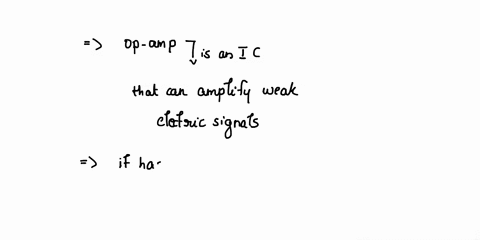 => op-amp is an IC
that can amplify weak
eletric signals
=> if ha